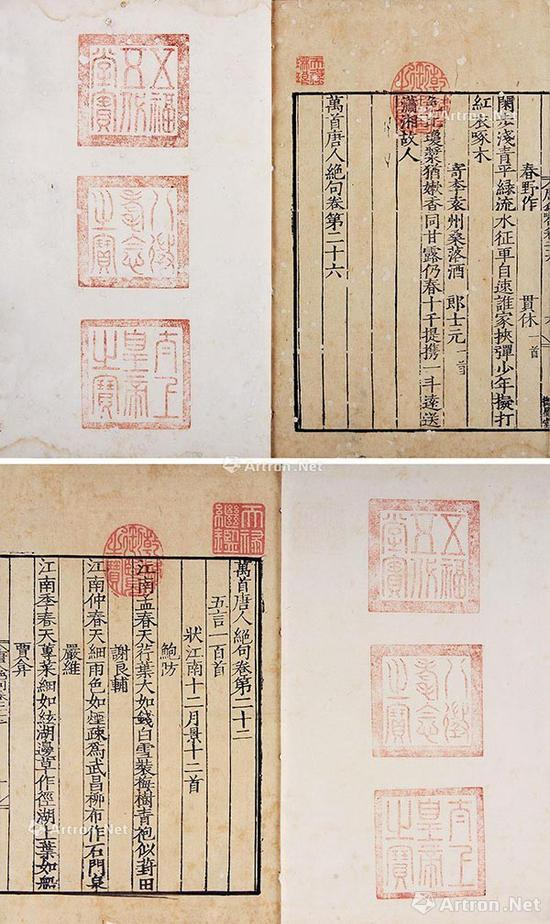 五福五代堂寶
八徵耄念之寶
太上皇帝之寶
天祿琳琅
乾隆御覽之寶
春野作 貫休 一首
閑步淺青平綠流水征車自速誰家挾彈少年擬打
紅衣啄木
寄李袁州桑落酒 郎士元 一首
色比瓊漿猶嫩香同甘露仍春十千提攜一斗遠送
瀟湘故人
萬首唐人絕句卷第二十六
Artron.Net
天祿繼鑑
乾隆御覽之寶
萬首唐人絕句卷第二十二
五言一百首
狀江南十二月景十二首
鮑防
江南孟春天荇葉大如錢白雪裝梅樹青袍似葑田
謝良輔
江南仲春天細雨色如煙疎為武昌柳布作石門泉
嚴維
江南季春天蓴葉細如絃湖邊草作徑湖上葉如船
賈弇
五福五代堂寶
八徵耄念之寶
太上皇帝之寶
Artron.Net